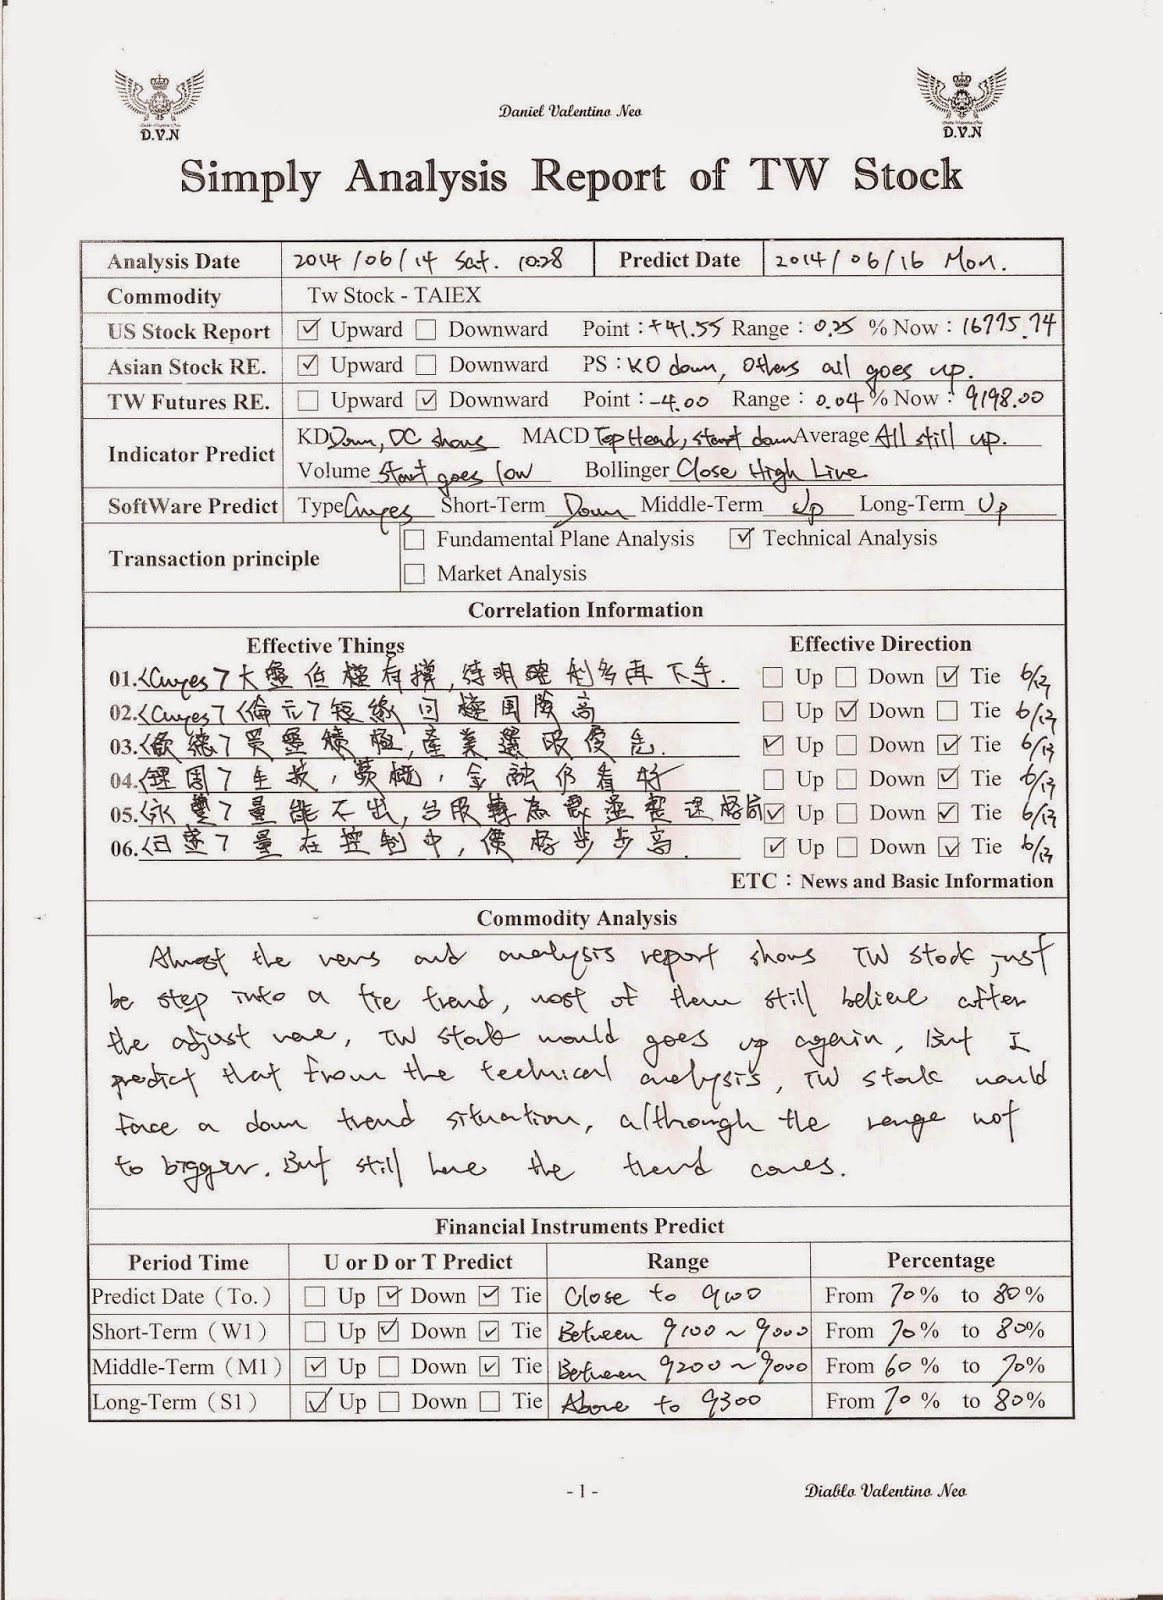 Daniel Valentino Neo
D.V.N
D.V.N
Simply Analysis Report of TW Stock
Analysis Date 2014/06/14 Sat. 10:28 Predict Date 2014/06/16 Mon.
Commodity Tw Stock - TAIEX
US Stock Report ☑ Upward ☐ Downward Point：+41.55 Range：0.25 % Now：16775.74
Asian Stock RE. ☑ Upward ☐ Downward PS：KO down, others all goes up.
TW Futures RE. ☐ Upward ☑ Downward Point：-4.00 Range：0.04 % Now：9198.00
Indicator Predict KD Down, DC shows MACD Top Head, start down Average All still up.
Volume start goes low Bollinger Close High Line
SoftWare Predict Type Cnyes Short-Term Down Middle-Term Up Long-Term Up
Transaction principle ☐ Fundamental Plane Analysis ☑ Technical Analysis
☐ Market Analysis
Correlation Information
Effective Things Effective Direction
01.<Cnyes>大盤低檔有撐,待明確利多再下手. ☐ Up ☐ Down ☑ Tie 6/13
02.<Cnyes><倫元>短線回檔風險高 ☐ Up ☑ Down ☐ Tie 6/13
03. 買盤積極,產業選股優先. ☑ Up ☐ Down ☑ Tie 6/13
04. 生技, 金融仍看好 ☐ Up ☐ Down ☑ Tie 6/13
05.<永豐>量能不出,台股轉為 整理格局 ☑ Up ☐ Down ☑ Tie 6/13
06.<日盛>量在控制中, 步步高. ☑ Up ☐ Down ☑ Tie 6/13
ETC：News and Basic Information
Commodity Analysis
Almost the news and analysis report shows TW stock just
be step into a tie trend, most of them still believe after
the adjust wave, TW stock would goes up again, But I
predict that from the technical analysis, TW stock would
face a down trend situation, although the range not
to bigger. But still have the trend comes.
Financial Instruments Predict
Period Time U or D or T Predict Range Percentage
Predict Date（To.） ☐ Up ☑ Down ☑ Tie Close to 9100 From 70% to 80%
Short-Term（W1） ☐ Up ☑ Down ☑ Tie Between 9100~9000 From 70% to 80%
Middle-Term（M1） ☑ Up ☐ Down ☑ Tie Between 9200~9000 From 60% to 70%
Long-Term（S1） ☑ Up ☐ Down ☐ Tie Above to 9300 From 70% to 80%
- 1 -
Diablo Valentino Neo